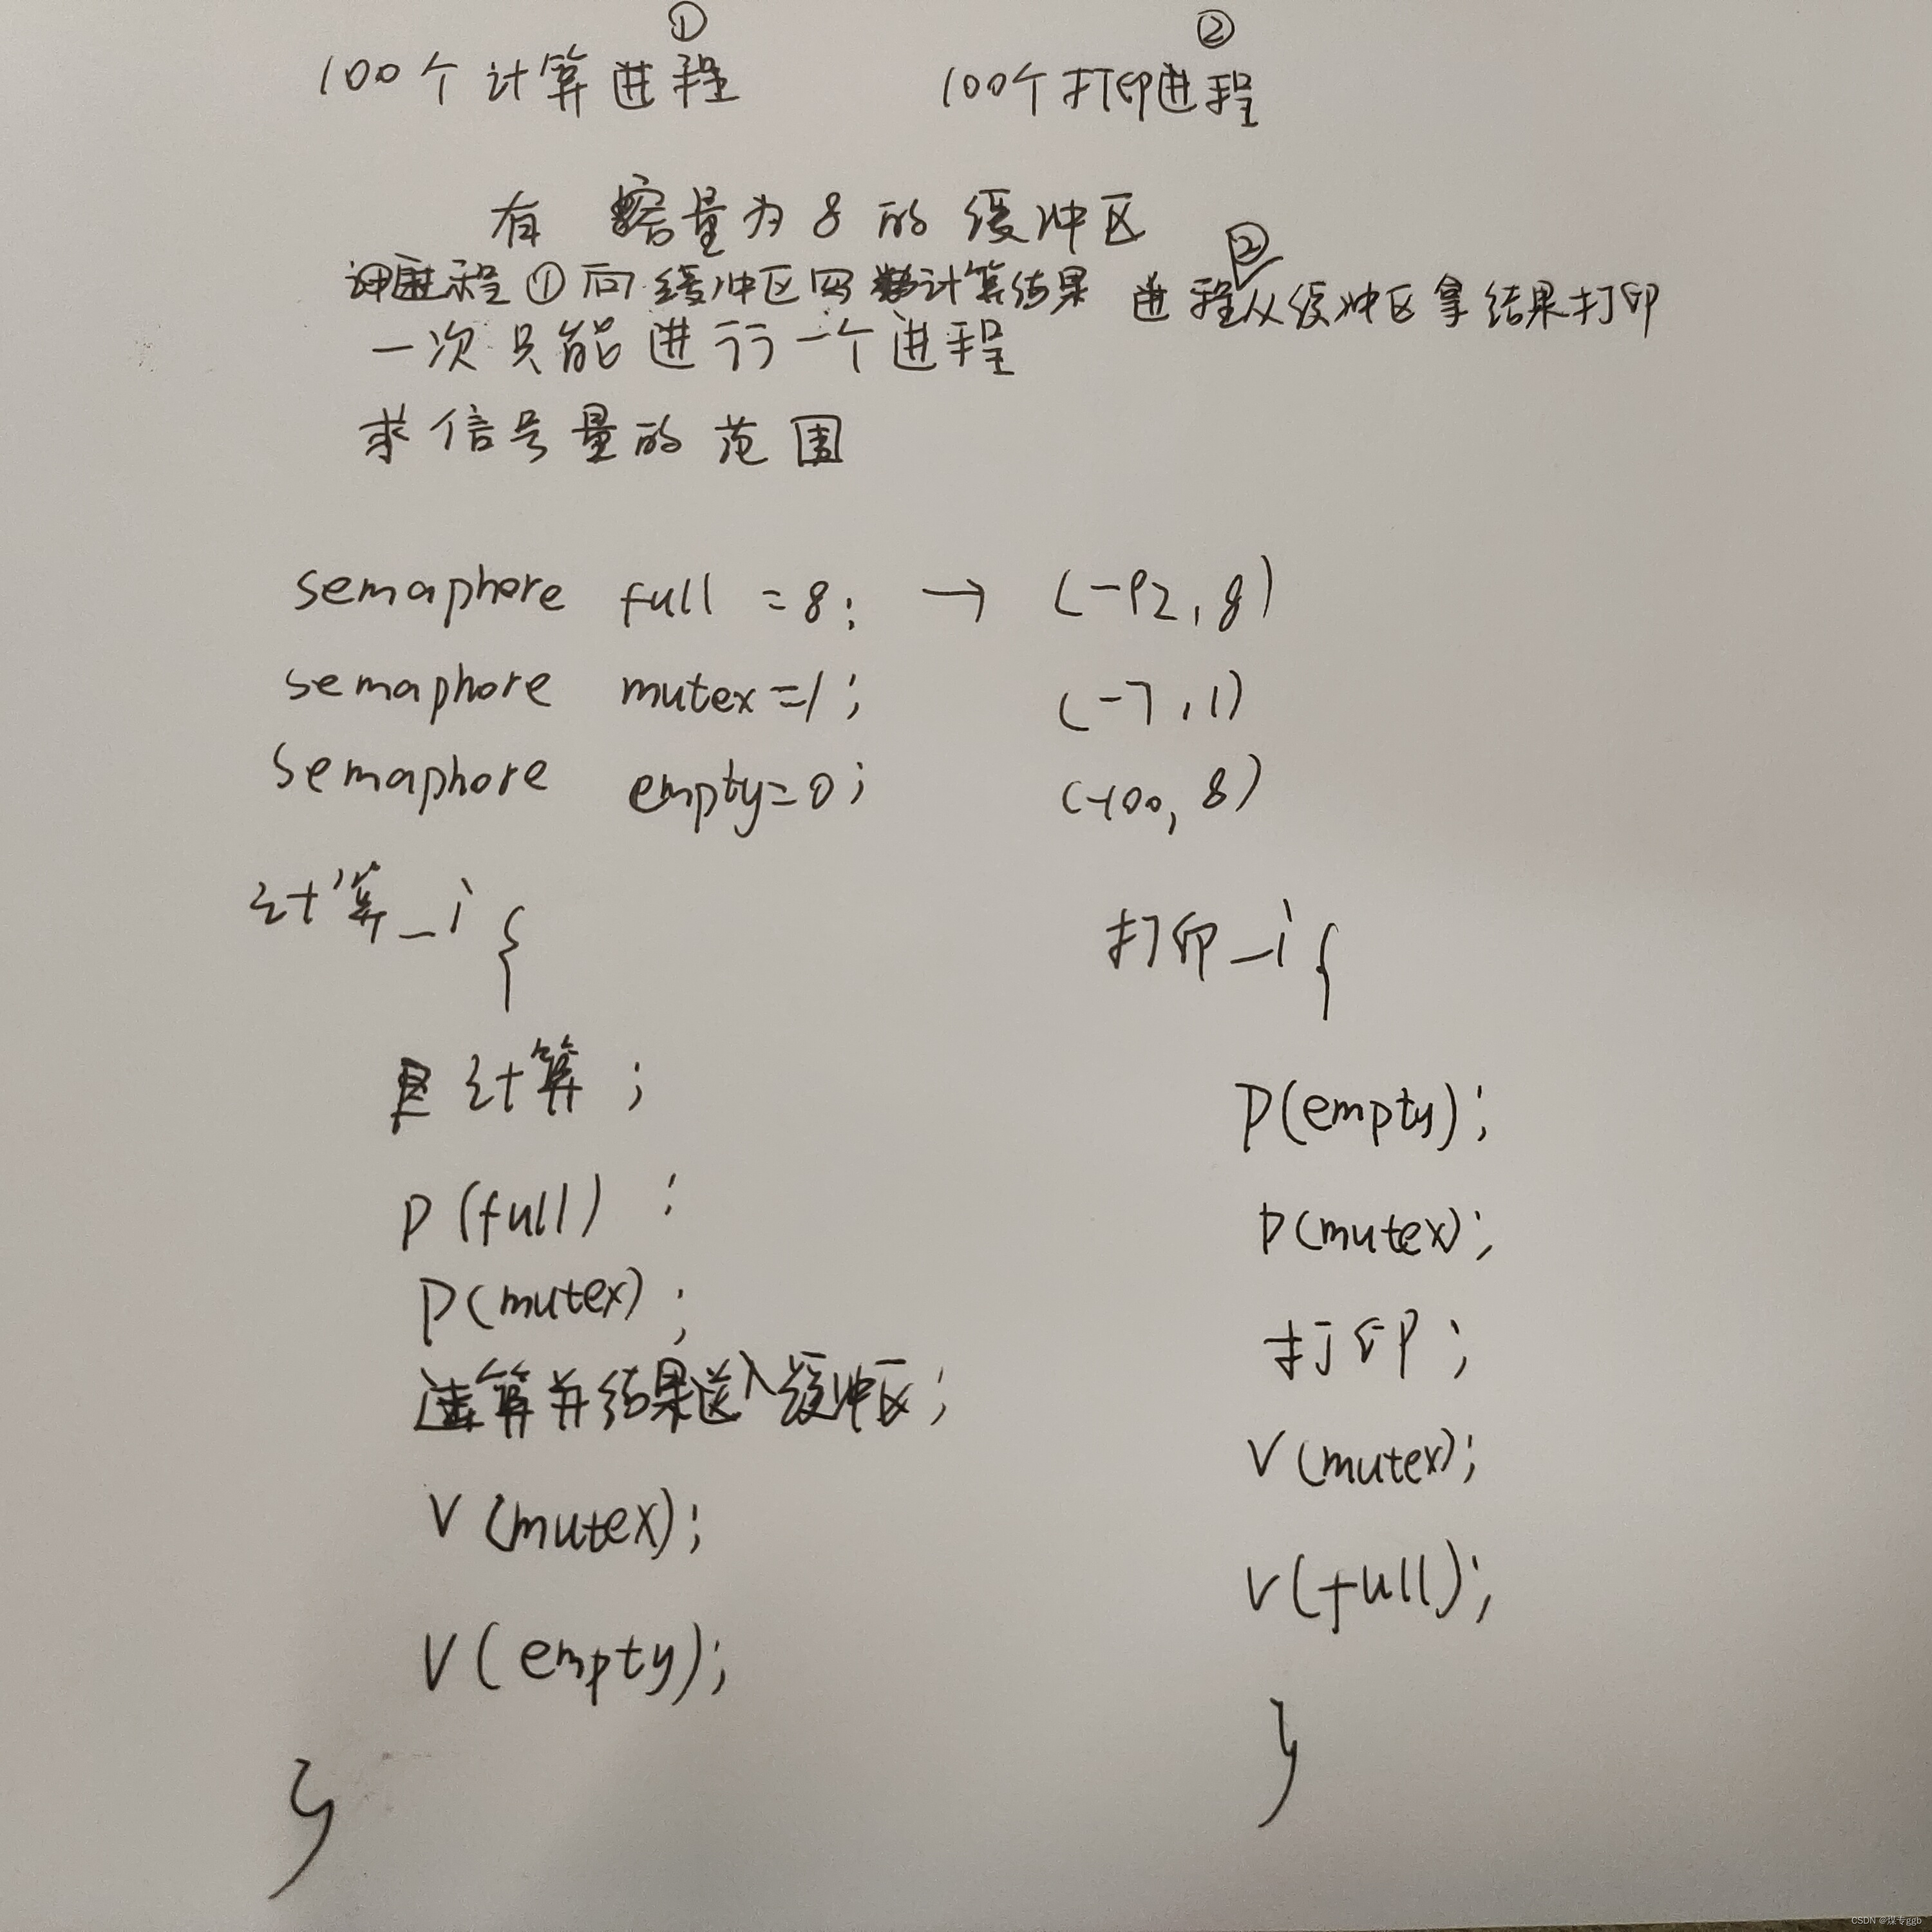 ① ②
100个计算进程 100个打印进程
有 容量为8的缓冲区
进程①向缓冲区写计算结果 进程②从缓冲区拿结果打印
一次只能进行一个进程
求信号量的范围
semaphore full =8; → (-92, 8)
semaphore mutex=1; (-7, 1)
semaphore empty=0; (-100, 8)
计算_i { 打印_i {
计算; P(empty);
P(full); P(mutex);
P(mutex); 打印;
算并结果送入缓冲区; V(mutex);
V(mutex); V(full);
V(empty);
} }
CSDN @煤专ggb